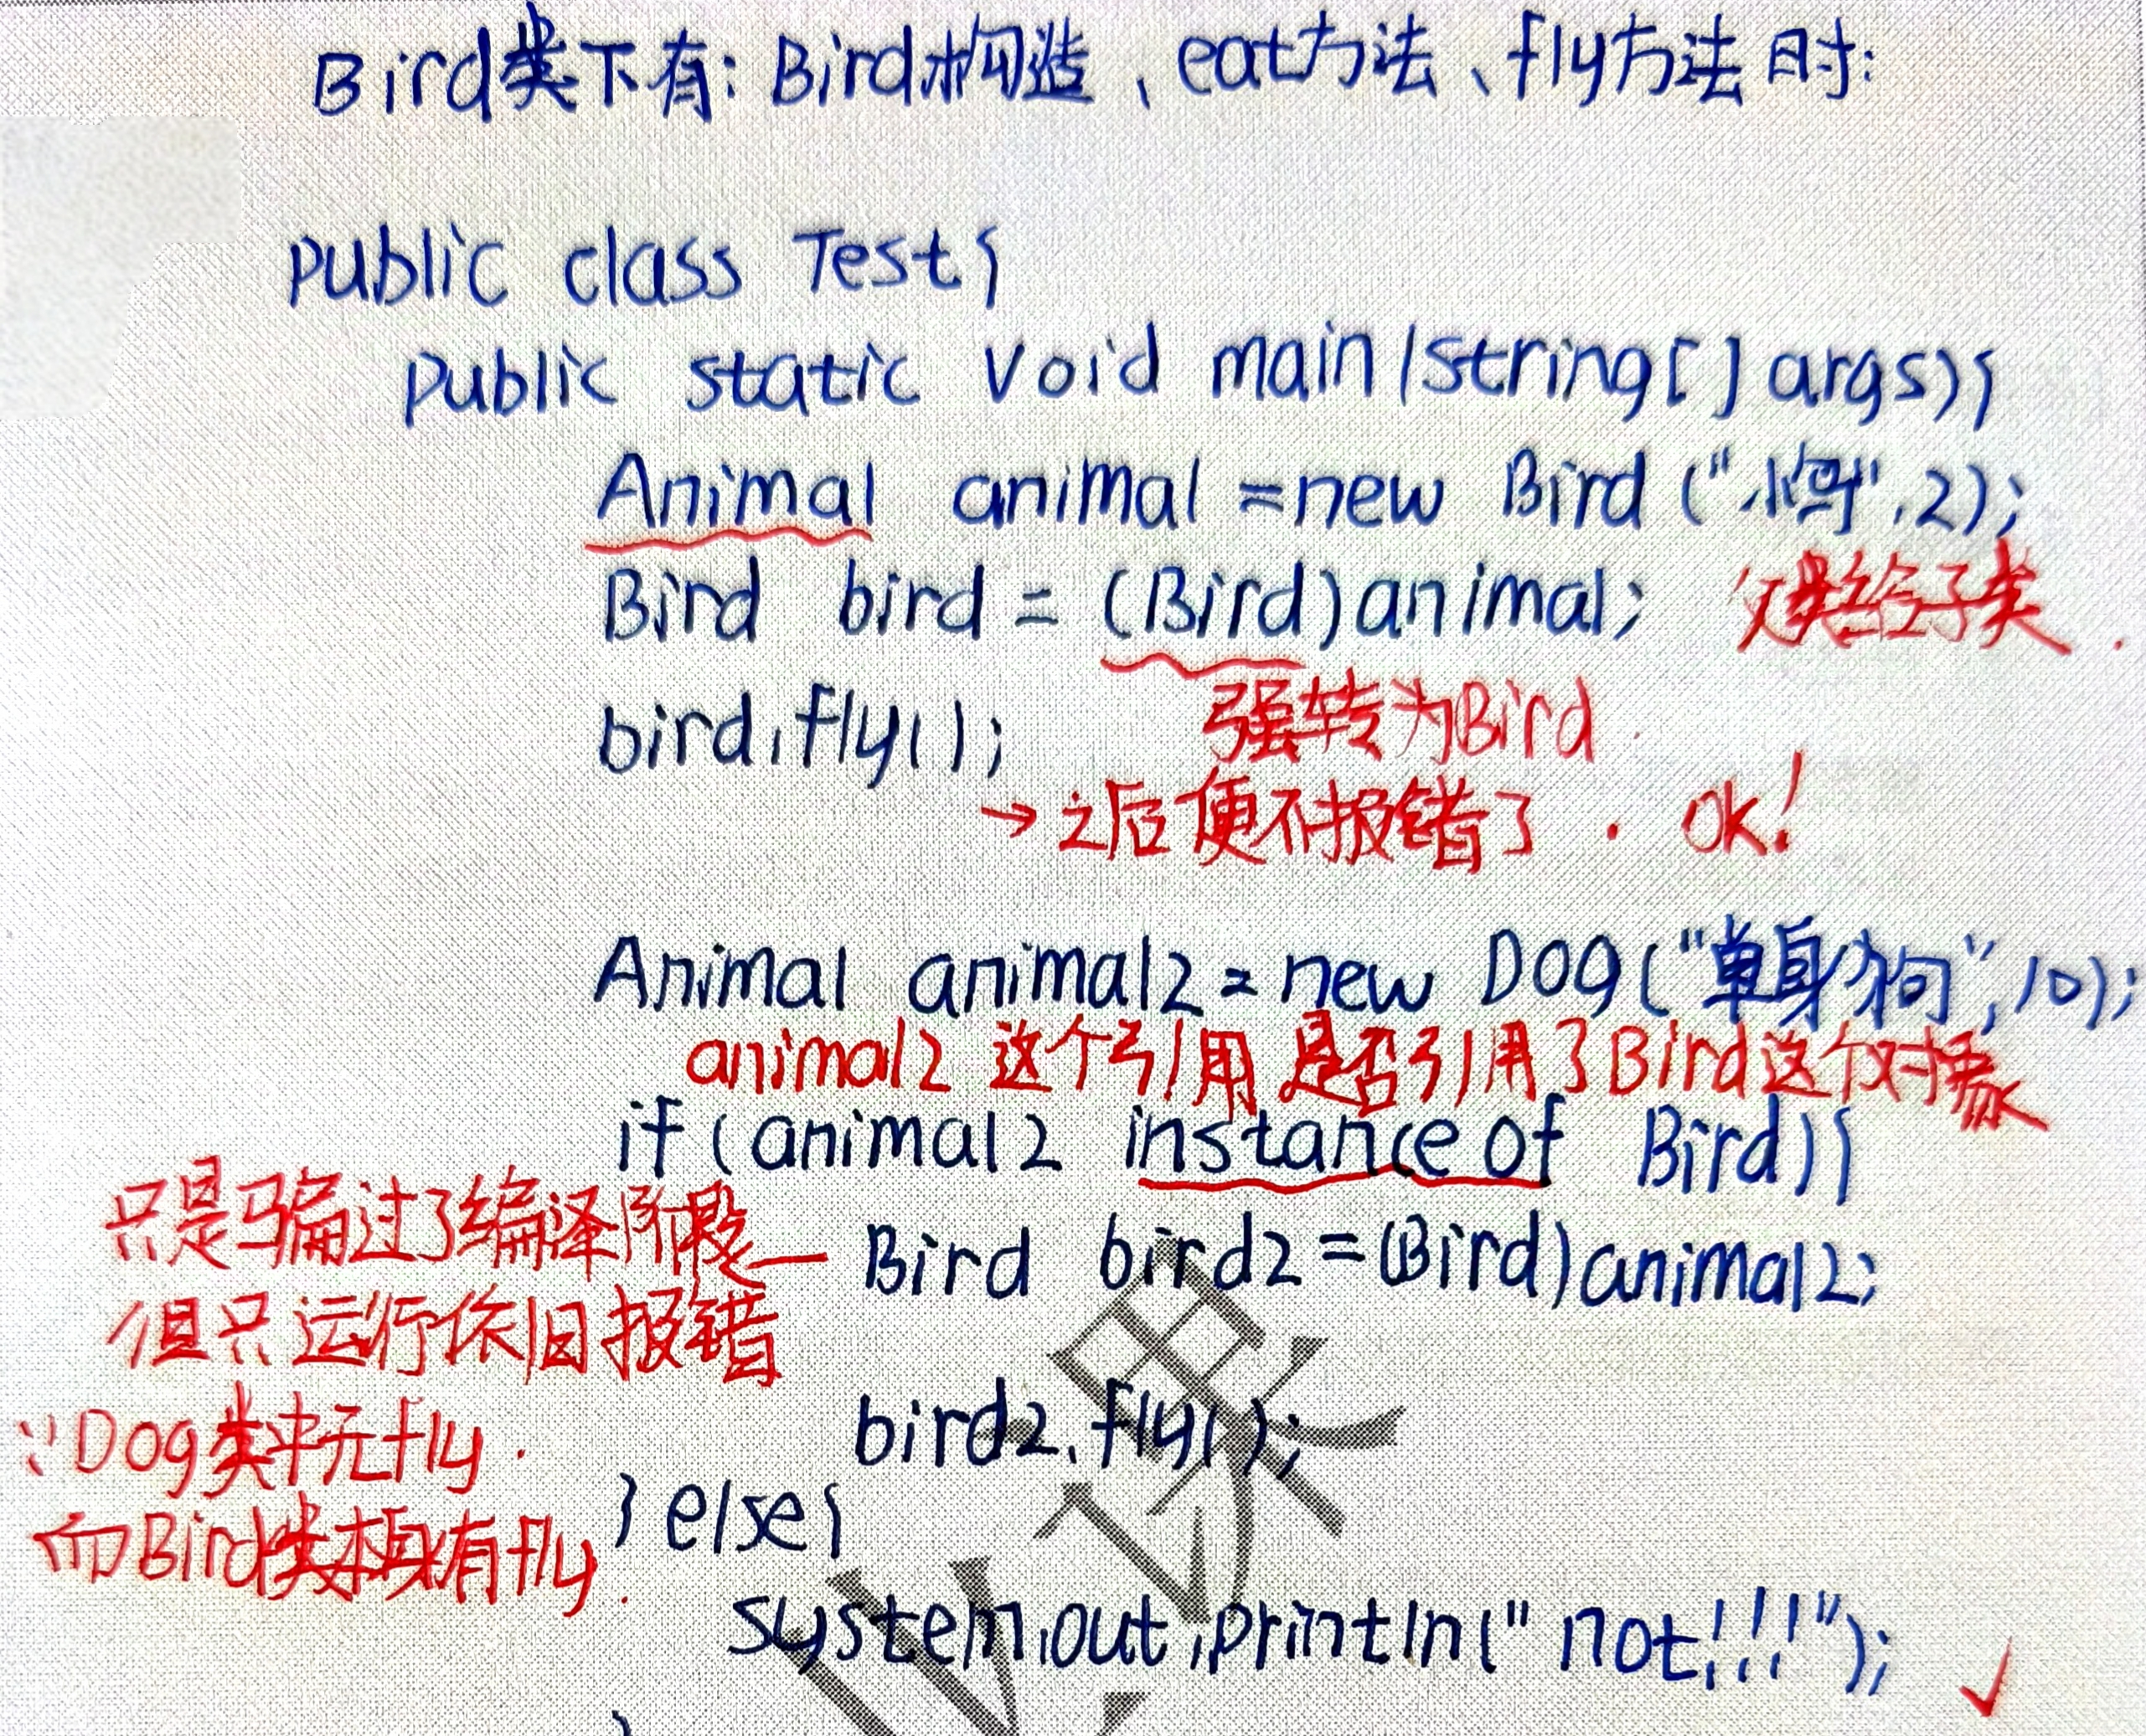 Bird类下有: Bird构造、eat方法、fly方法时:
public class Test{
public static void main(string[] args){
Animal animal = new Bird ("小鸟",2);
Bird bird = (Bird)animal; 父类给子类.
bird.fly(); 强转为Bird.
→之后便不报错了. ok!
Animal animal2 = new Dog("单身狗",10);
animal2 这个引用是否引用了Bird这个对象
if (animal2 instance of Bird){
只是骗过了编译阶段— Bird bird2=(Bird)animal2;
但只运行依旧报错
bird2.fly();
∵Dog类中无fly.
} else{
而Bird类本身有fly.
system.out.println("not!!!"); ✓
}